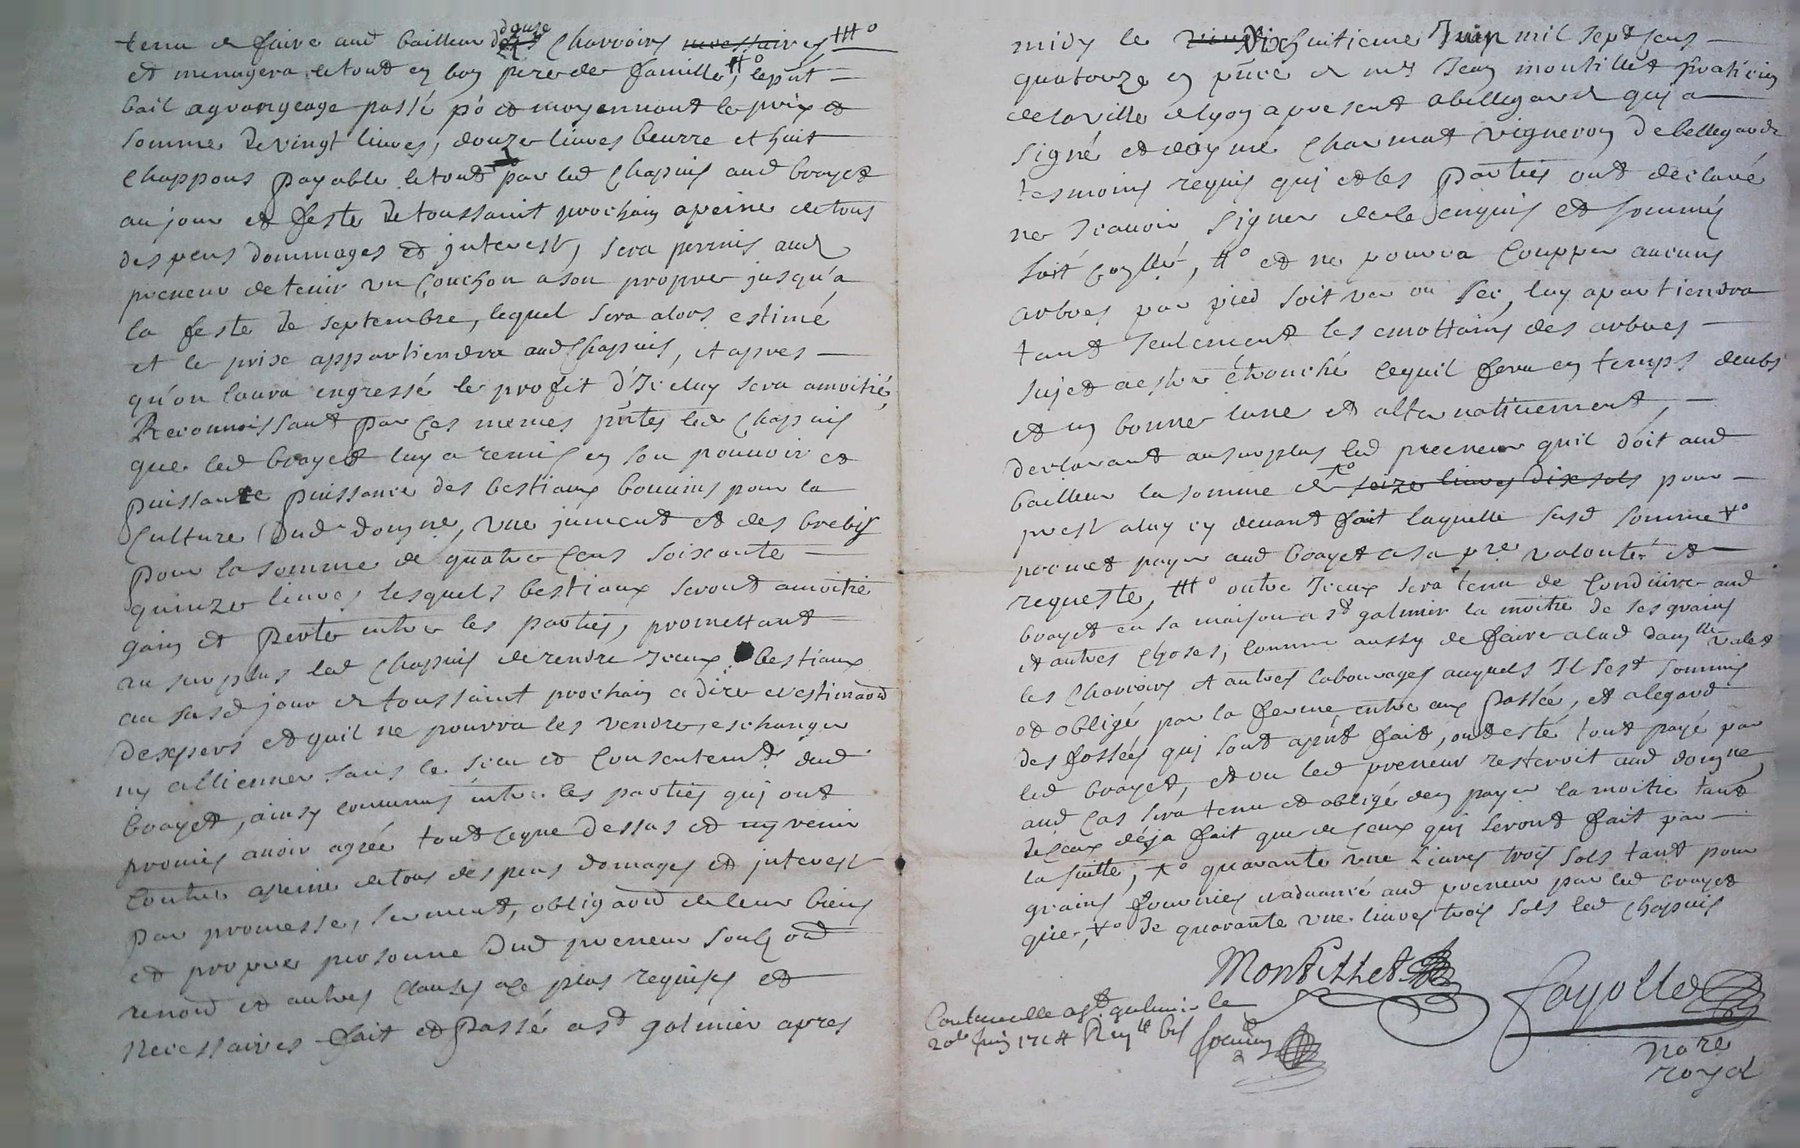 tenu de faire aud bailleur douze charrois necessaires #°
et menagera letout en bon pere de famille, #° leput
bail agrangeage passé p'o et moyennant le prix et
somme de vingt livres, douze livres beurre et huit
chappons payable letout par led Chapuis aud boayet
au jour et feste de toussaint prochain apeine detous
despens dommages et interest, sera permis aud
preneur de tenir un couchon a son propre jusqu'a
la feste de septembre, lequel sera alors estimé
et le prise appartiendra aud Chapuis, et apres
qu'on laura engressé le profet d'Iceluy sera amoitié,
Reconnoissant par ces memes pntes led Chapuis
que led boayet luy a remis en son pouvoir et
puissante puissance des bestiaux bouvins pour la
Culture dud domne, une jument et des brebis
pour la somme de quatre cens soixante
quinze livres lesquels bestiaux seront amoitié
gain et perte entre les parties, promettant
au surplus led Chapuis de rendre Iceux bestiaux
au susd jour de toussaint prochain a dire et estimaon
dexpers et quil ne pourra les vendre, eschanger
ny allienner sans le sceu et consentemt dud
boayet, ainsy convenus entre les parties qui ont
promis avoir agréé tout ceque dessus et ny venir
contre apeine detous despens domages et interest
par promesse, serment, obligaon de leur biens
et propre personne dud preneur soubz on
renon et autres clauses ace plus requises et
necessaires fait et Passé a st galmier apres
midy le dixhuitieme Juin mil sept sens
quatorze en pnce de mr Jean montillet praticien
de la ville de lyon apresent a bellegarde qui a
signé et aymé Charmat vigneron de bellegarde
tesmoins requis qui et les parties ont déclaré
ne scavoir signer de le enquis et sommés
soit coyllé, #° et ne pourra coupper aucuns
arbres par pied soit ver ou sec, luy apartiendra
tant seulement les emottains des arbres
sujet a estre étrouché lequil fera en temps deubs
et en bonne lune et alternativement,
declarant au surplus led preneur quil doit aud
bailleur la somme de +° seize livres dix sols pour
prest aluy cy devant fait laquelle susd somme +°
promet payer aud boayet a sa pre volonté et
requeste, #° outre Iceux sera tenu de conduire aud
boayet en sa maison a st galmier la moitié de ses grains
et autres choses, comme aussy de faire alad damlle valet
les charrois et autres labourages auquels Il sest sommis
et obligé par la ferme entre eux Passée, et alegard
des fossés qui sont aprnt fait, ont esté tout payé par
led boayet, et ou led preneur resteroit aud domne,
aud cas sera tenu et obligé den payer la moitié tant
de ceux déja fait que de ceux qui seront fait par
la suitte, +° quarante une livres trois sols tant pour
grains fournies nadvancé aud preneur par led boayet
que, +° de quarante une livres trois sols led Chapuis
Montillet
Fayolle
nore
royal
Controuelle a st galmier le
20e Juin 1714 R